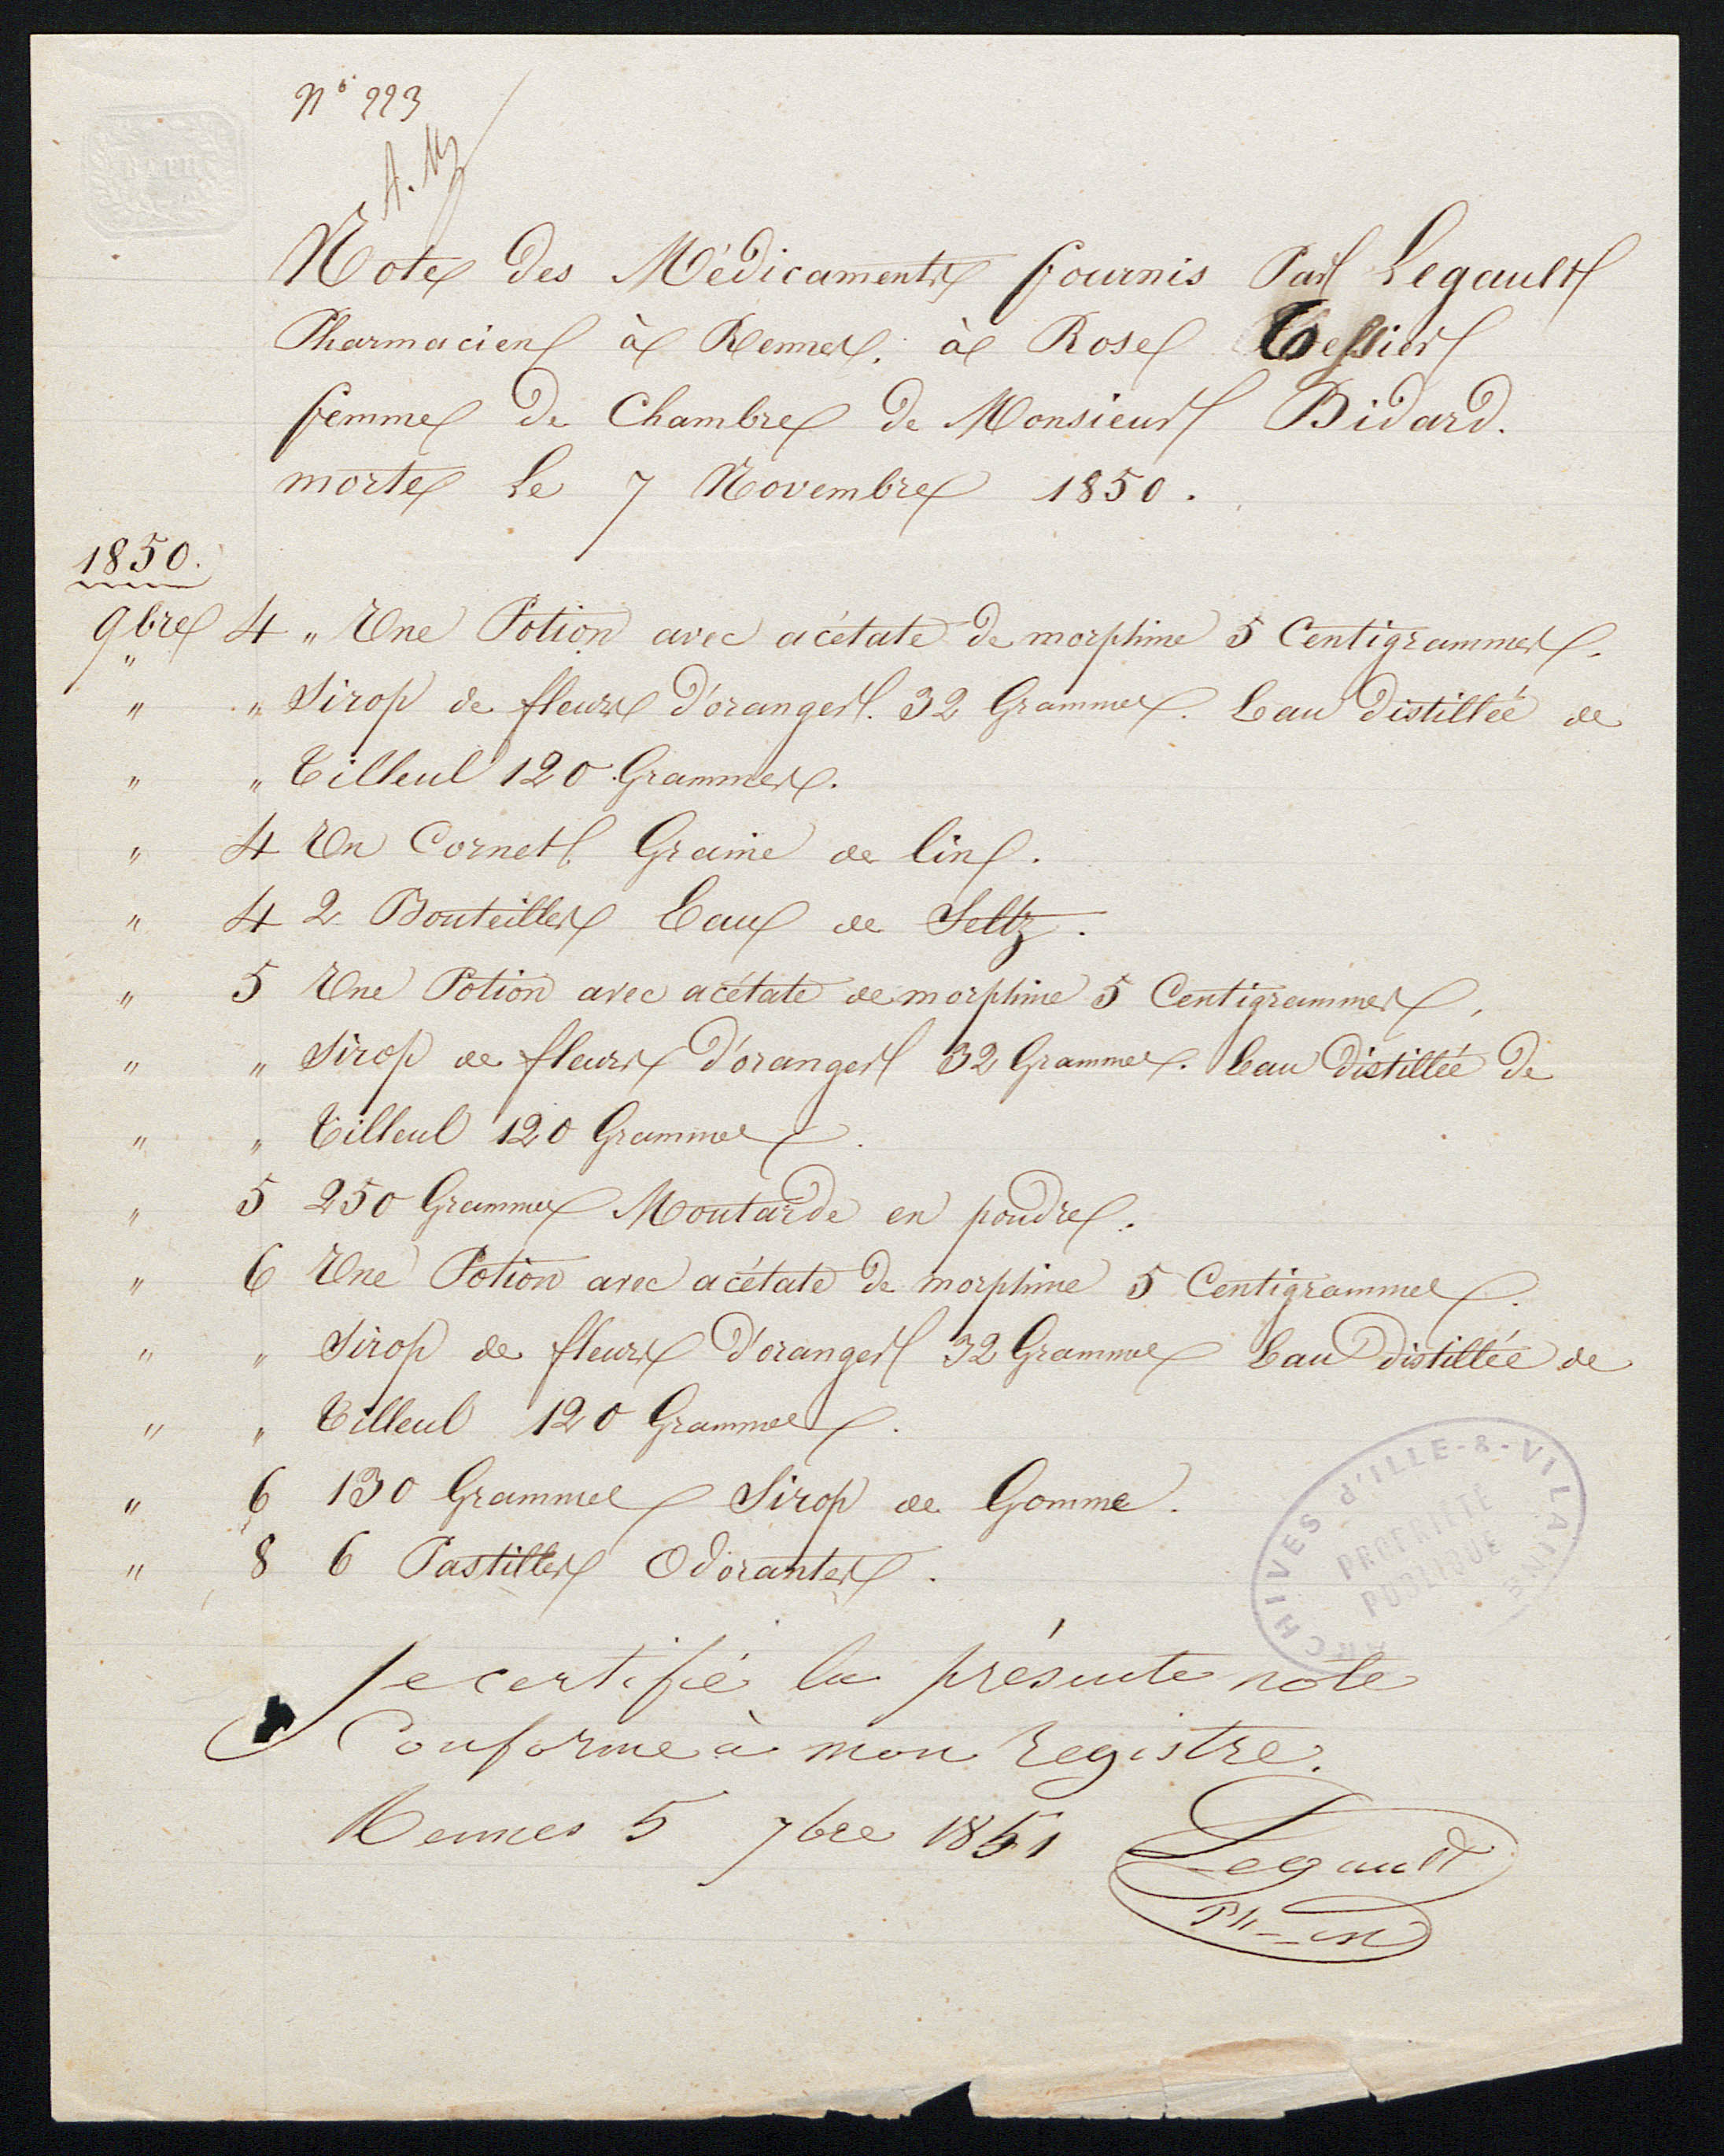 N° 223
A. Mz
Note des Médicaments fournis Par Legault
Pharmacien à Rennes, à Rose Tessier
femme de Chambre de Monsieur Bidard.
morte le 7 Novembre 1850.
1850.
9bre 4 " Une Potion avec acétate de morphine 5 Centigrammes.
" " Sirop de fleurs d'oranger. 32 Grammes. Eau distillée de
" " Tilleul 120 Grammes.
" 4 Un Cornet Graine de lin.
" 4 2 Bouteilles Eau de Seltz.
" 5 Une Potion avec acétate de morphine 5 Centigrammes,
" " Sirop de fleurs d'oranger 32 Grammes. Eau distillée de
" " Tilleul 120 Grammes.
" 5 250 Grammes Moutarde en poudre.
" 6 Une Potion avec acétate de morphine 5 Centigrammes.
" " Sirop de fleurs d'oranger 32 Grammes Eau distillée de
" " Tilleul 120 Grammes.
" 6 130 Grammes Sirop de Gomme.
" 8 6 Pastilles Odorantes.
ARCHIVES d'ILLE-&-VILAINE
PROPRIÉTÉ
PUBLIQUE
Je certifie la présente note
Conforme à mon registre.
Rennes 5 7bre 1851
Legault
Ph-en